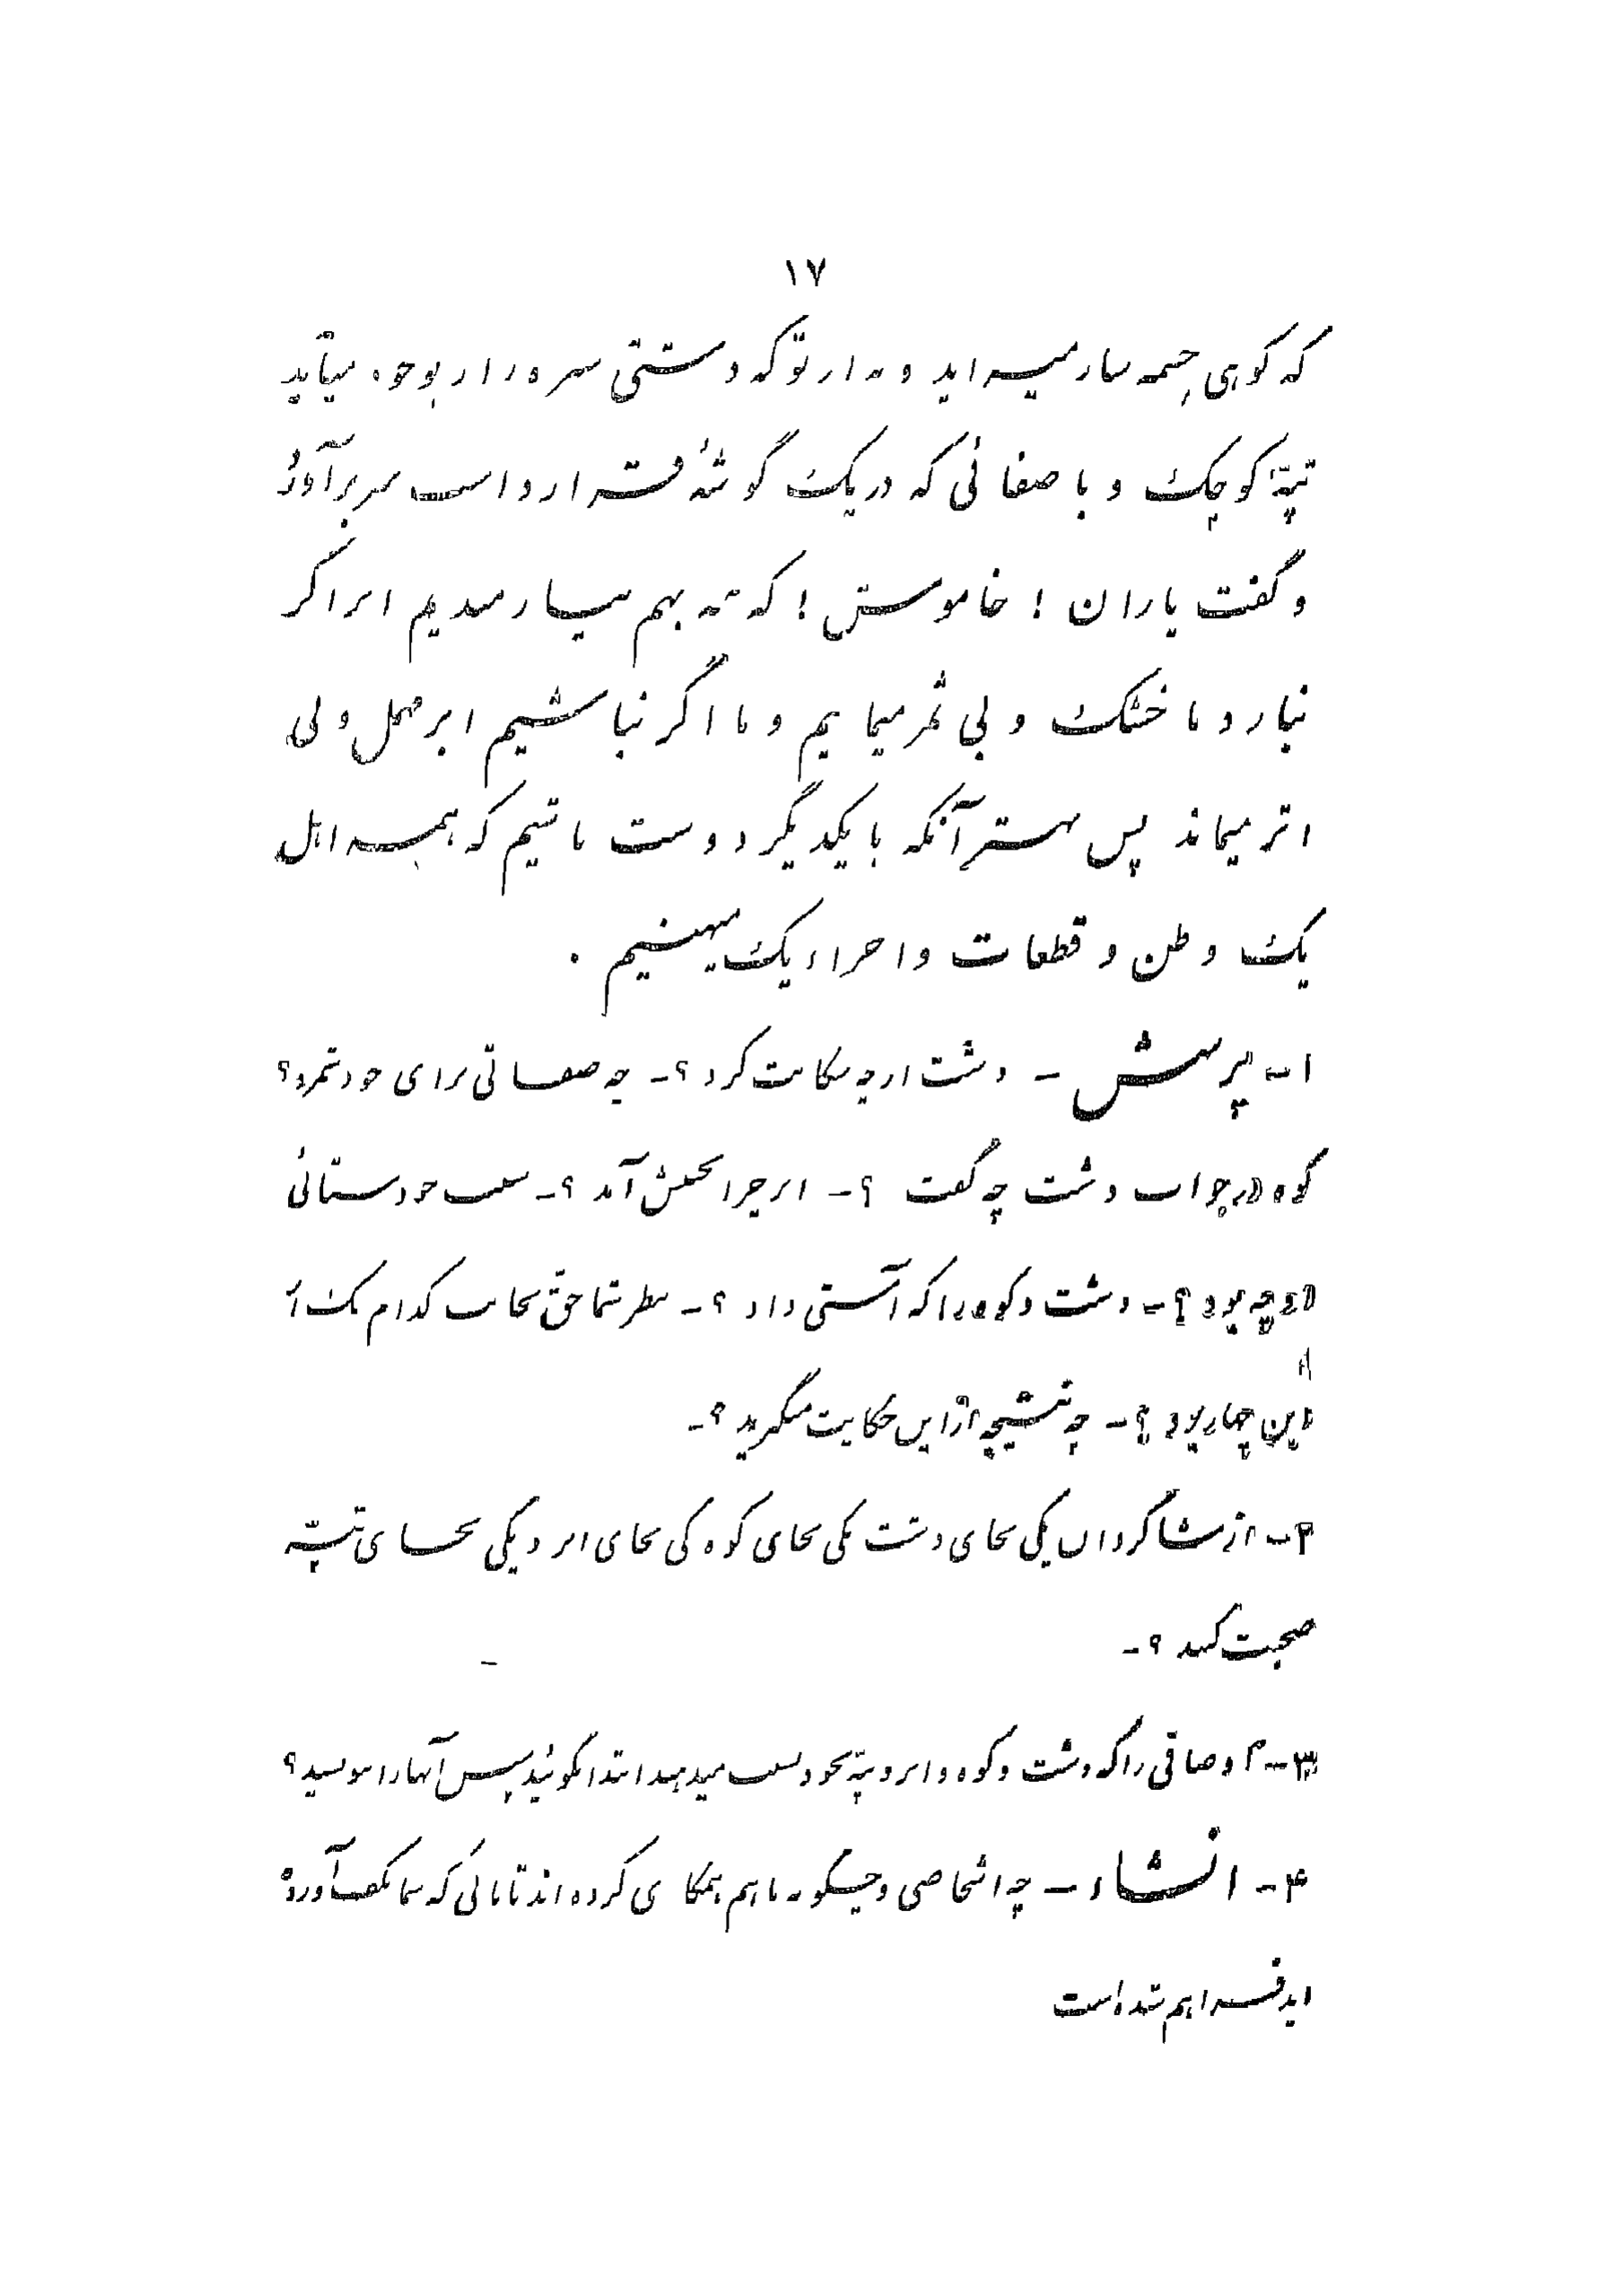 ۱۷
که کوهی چشمه سار میزاید و نه از تو که دشتی سبزه زار بوجود میآید
تپهٔ کوچک و با صفائی که در یک گوشه قرار داشت سر برآورد
و گفت یاران ! خاموش ! که همه بهم نیازمندیم ابر اگر
نبارد ما خشک و بی ثمر میمانیم و ما اگر نباشیم ابر مهمل و بی
اثر میماند پس بهتر آنکه با یکدیگر دوست باشیم که همه اهل
یک وطن و قطعات و اجزاء یک میهنیم .
۱- پرسش - دشت از چه شکایت کرد ؟- چه صفاتی برای خود شمرد ؟
کوه در جواب دشت چه گفت ؟- ابر چرا بخشم آمد ؟- سبب خودستائی
او چه بود ؟- دشت و کوه را که آشتی داد ؟- بنظر شما حق بجانب کدام یک از
این چهار بود ؟- چه نتیجه از این حکایت میگیرید ؟-
۲- از شاگردان یکی بجای دشت یکی بجای کوه یکی بجای ابر و یکی بجای تپه
صحبت کنند ؟-
۳- اوصافی را که دشت و کوه و ابر و تپه بخود نسبت میدهند ابتدا بگوئید سپس آنها را بنویسید ؟
۴- انشاء - چه اشخاصی و چگونه با هم همکاری کرده اند تا نانی که شما بکف آورده
اید فراهم شده است